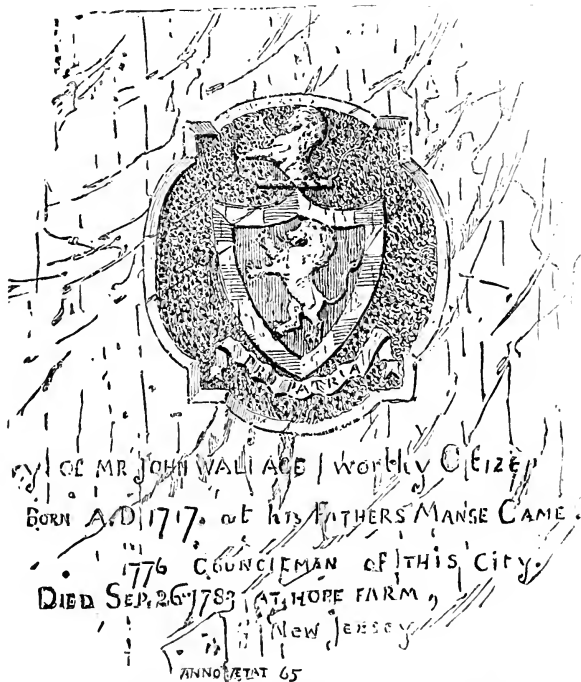 PRO PATRIA
OF MR JOHN WALLACE worthy CITIZE
BORN A.D 1717. at his FATHERS MANSE CAME
1776 COUNCILMAN of THIS City.
DIED SEP. 26 1783 AT HOPE FARM,
New Jersey
ANNO ÆTAT 65